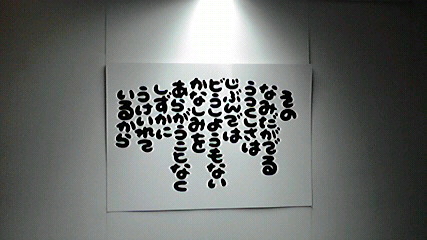 その
なみだがでる
うつくしさは
じぶんでは
どうしようもない
かなしみを
あらがうことなく
しずかに
うけいれて
いるから